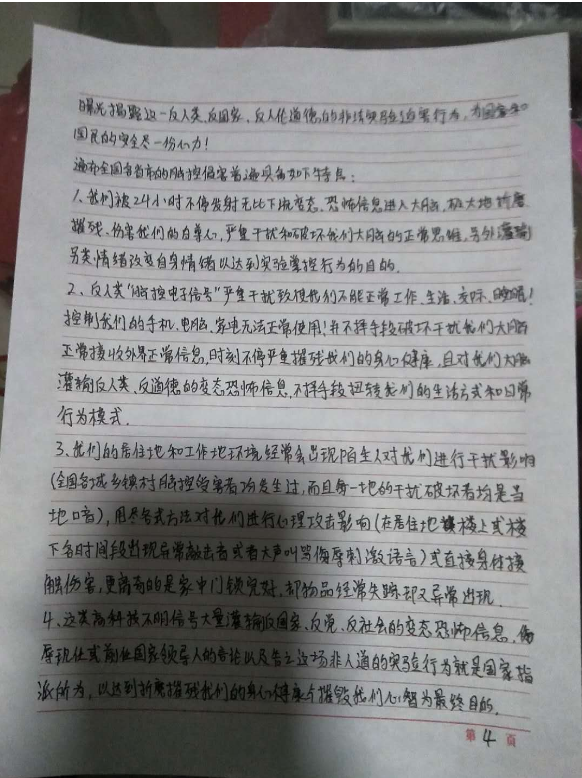 曝光揭露这一反人类、反国家、反人伦道德的非法实验迫害行为，为国家和
国民的安全尽一份心力！
遍布全国各省市的脑控受害者普遍具有如下特点：
1、我们被24小时不停发射无比下流变态、恐怖信息进入大脑，极大地折磨
摧残、伤害我们的自尊心，严重干扰和破坏我们大脑的正常思维，另外灌输
另类情绪改变自身情绪以达到实验掌控行为的目的．
2、反人类“脑控电子信号”严重干扰致使我们不能正常工作、生活、交际、睡眠！
控制我们的手机、电脑、家电无法正常使用！并不择手段破坏干扰我们大脑
正常接收外界正常信息，时刻不停严重摧残我们的身心健康，且对我们大脑
灌输反人类、反道德的变态恐怖信息，不择手段扭转我们的生活方式和日常
行为模式．
3、我们的居住地和工作地环境经常会出现陌生人对我们进行干扰影响
(全国各城乡镇村脑控受害者均发生过，而且每一地的干扰破坏者均是当
地口音)，用尽各式方法对我们进行心理攻击影响(在居住地楼上或楼
下各时间段出现异常敲击者或者大声叫骂侮辱刺激语言)或直接身体接
触伤害，更离奇的是家中门锁完好，却物品经常失踪却又异常出现．
4、这类高科技不明信号大量灌输反国家、反党、反社会的变态恐怖信息，侮
辱现任或前任国家领导人的言论以及告之这场非人道的实验行为就是国家指
派所为，以达到折磨摧残我们的身心健康与摧毁我们心智为最终目的．
第 4 页